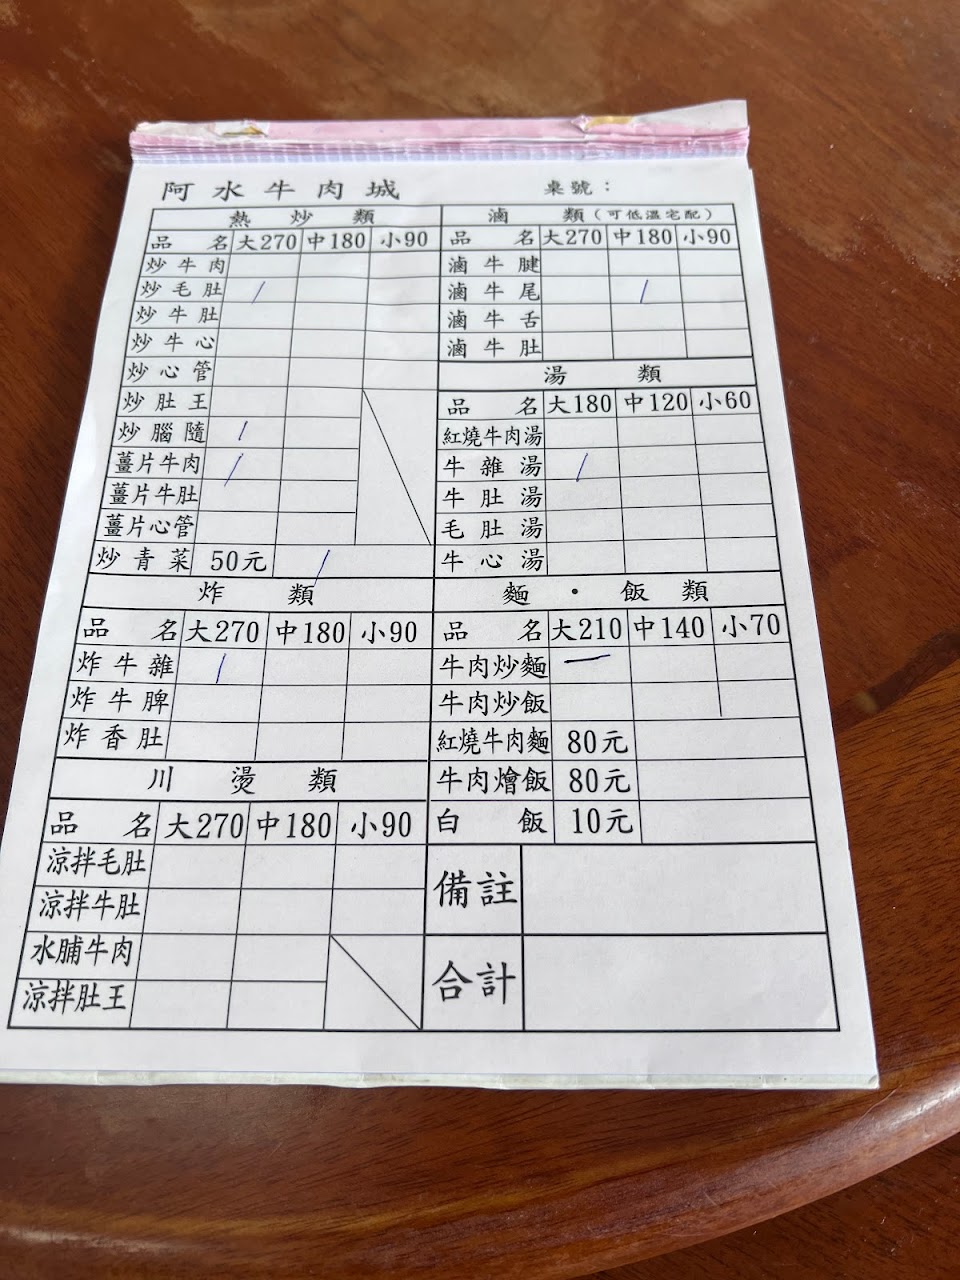 阿水牛肉城 桌號：
熱炒類
品名 大270 中180 小90
炒牛肉
炒毛肚 /
炒牛肚
炒牛心
炒心管
炒肚王
炒腦隨 /
薑片牛肉 /
薑片牛肚
薑片心管
炒青菜 50元 /
炸類
品名 大270 中180 小90
炸牛雜 /
炸牛脾
炸香肚
川燙類
品名 大270 中180 小90
涼拌毛肚
涼拌牛肚
水脯牛肉
涼拌肚王
滷類（可低溫宅配）
品名 大270 中180 小90
滷牛腱
滷牛尾 /
滷牛舌
滷牛肚
湯類
品名 大180 中120 小60
紅燒牛肉湯
牛雜湯 /
牛肚湯
毛肚湯
牛心湯
麵・飯類
品名 大210 中140 小70
牛肉炒麵 一
牛肉炒飯
紅燒牛肉麵 80元
牛肉燴飯 80元
白飯 10元
備註
合計